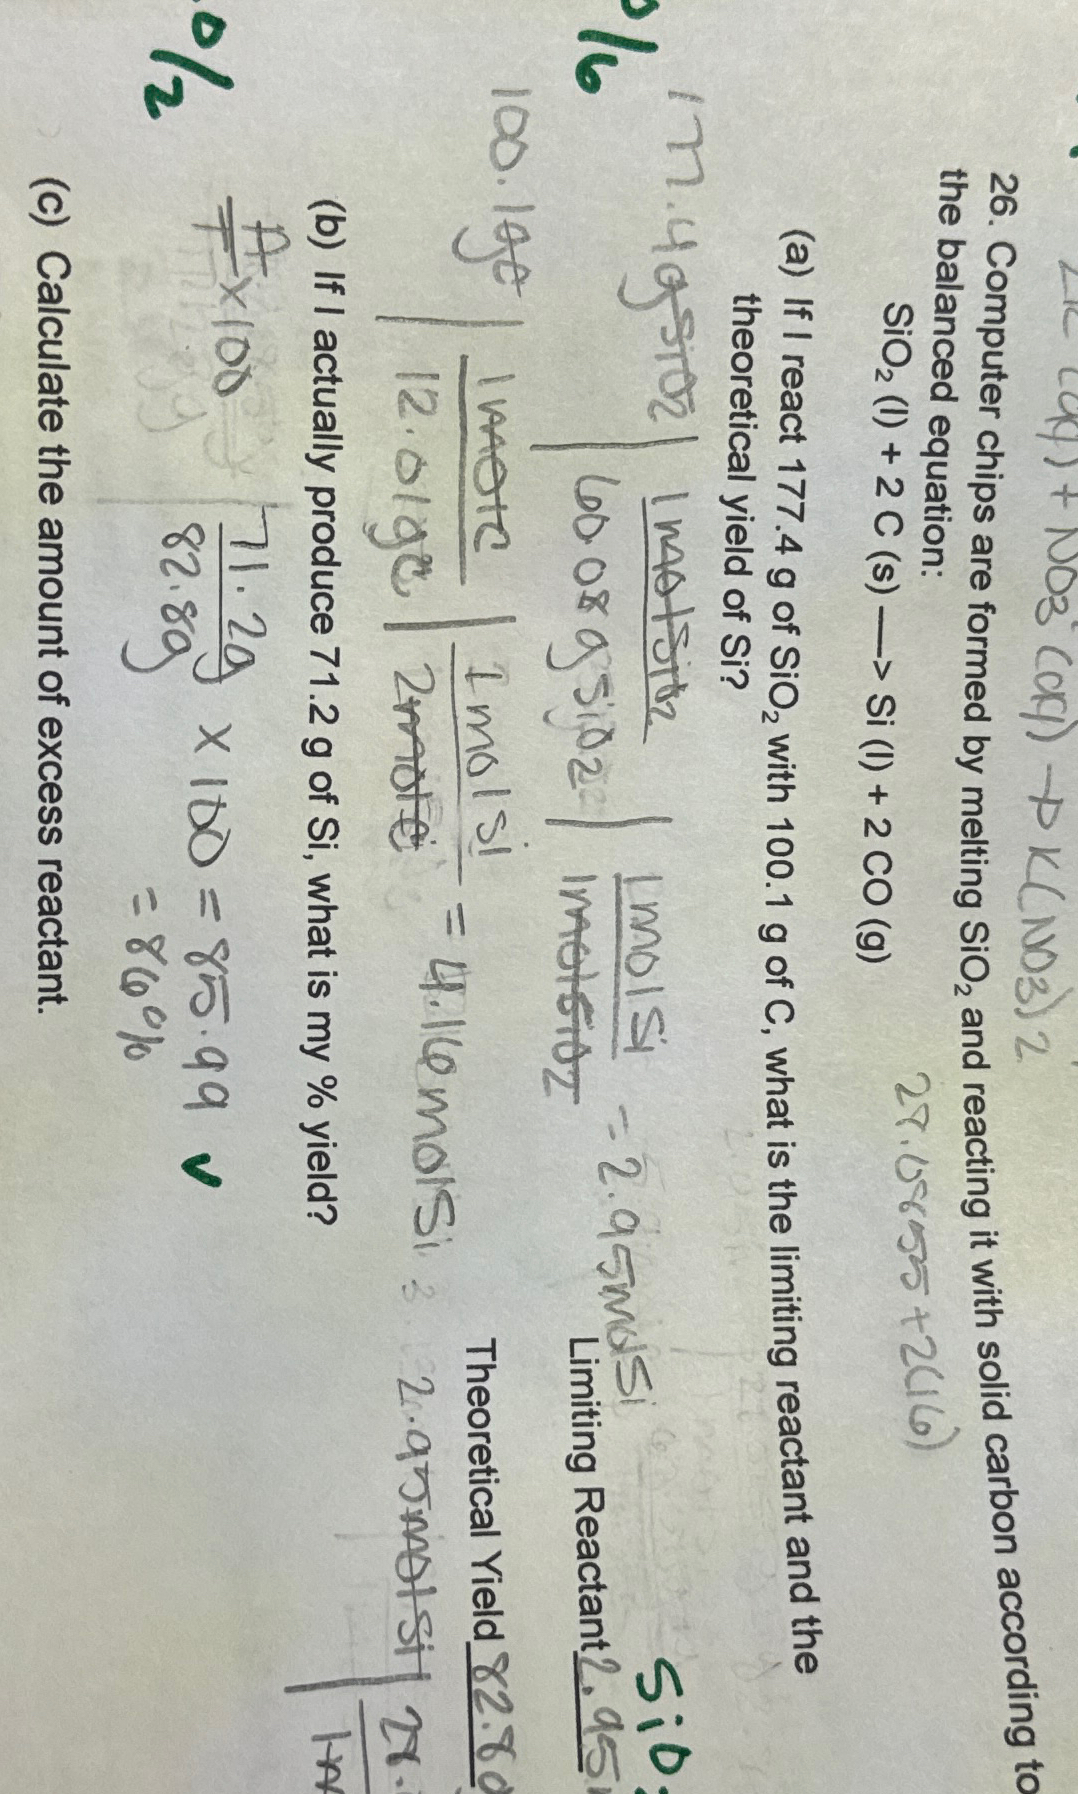 (aq) + NO3 (aq) → K(NO3)2
26. Computer chips are formed by melting SiO₂ and reacting it with solid carbon according to
the balanced equation:
28.0855+2(16)
SiO₂ (l) + 2 C (s) —> Si (l) + 2 CO (g)
(a) If I react 177.4 g of SiO₂ with 100.1 g of C, what is the limiting reactant and the
theoretical yield of Si?
0/6
177.4gSiO2 | 1molSiO2 | 1molSi = 2.95molSi
60.08gSiO2 | 1molSiO2
Limiting Reactant 2.95
100.1gC | 1molC | 1molSi = 4.16molSi
12.01gC | 2molC
Theoretical Yield 82.8
2.95molSi | 28.
(b) If I actually produce 71.2 g of Si, what is my % yield?
0/2
A/T x100
71.2g/82.8g x 100 = 85.99 ✓
= 86%
(c) Calculate the amount of excess reactant.